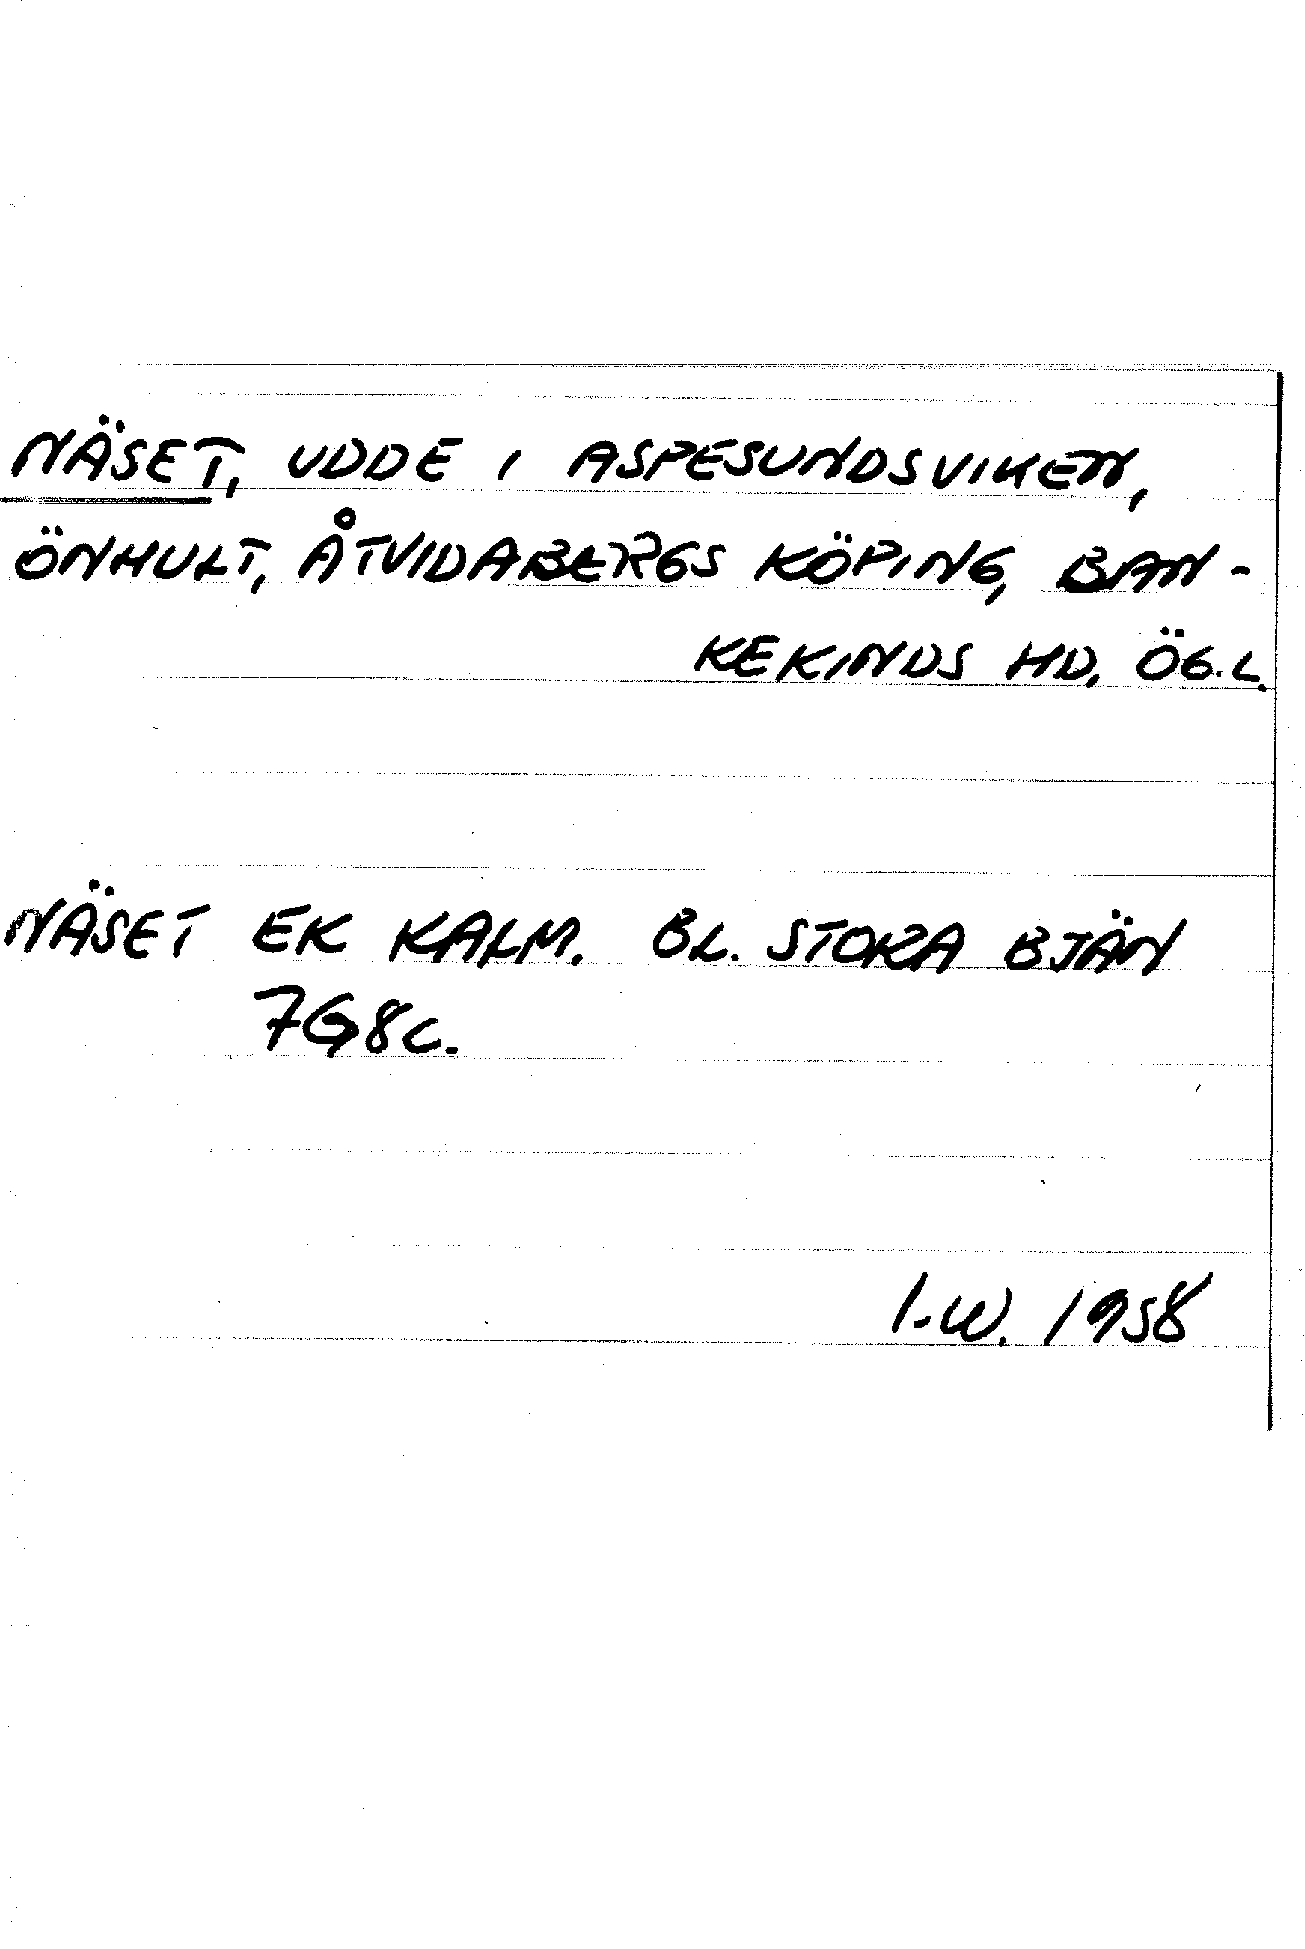 NÄSET, UDDE I ASPESUNDSVIKEN,
ÖNHULT, ÅTVIDABERGS KÖPING, BAN-
KEKINDS HD, ÖG.L.
NÄSET EK KALM. BL. STORA BJÄN
7G8c.
I.W. 1958